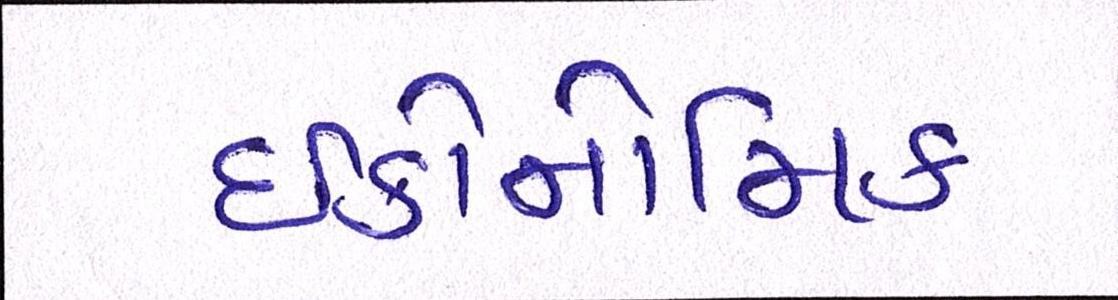 ઈકોનોમિક